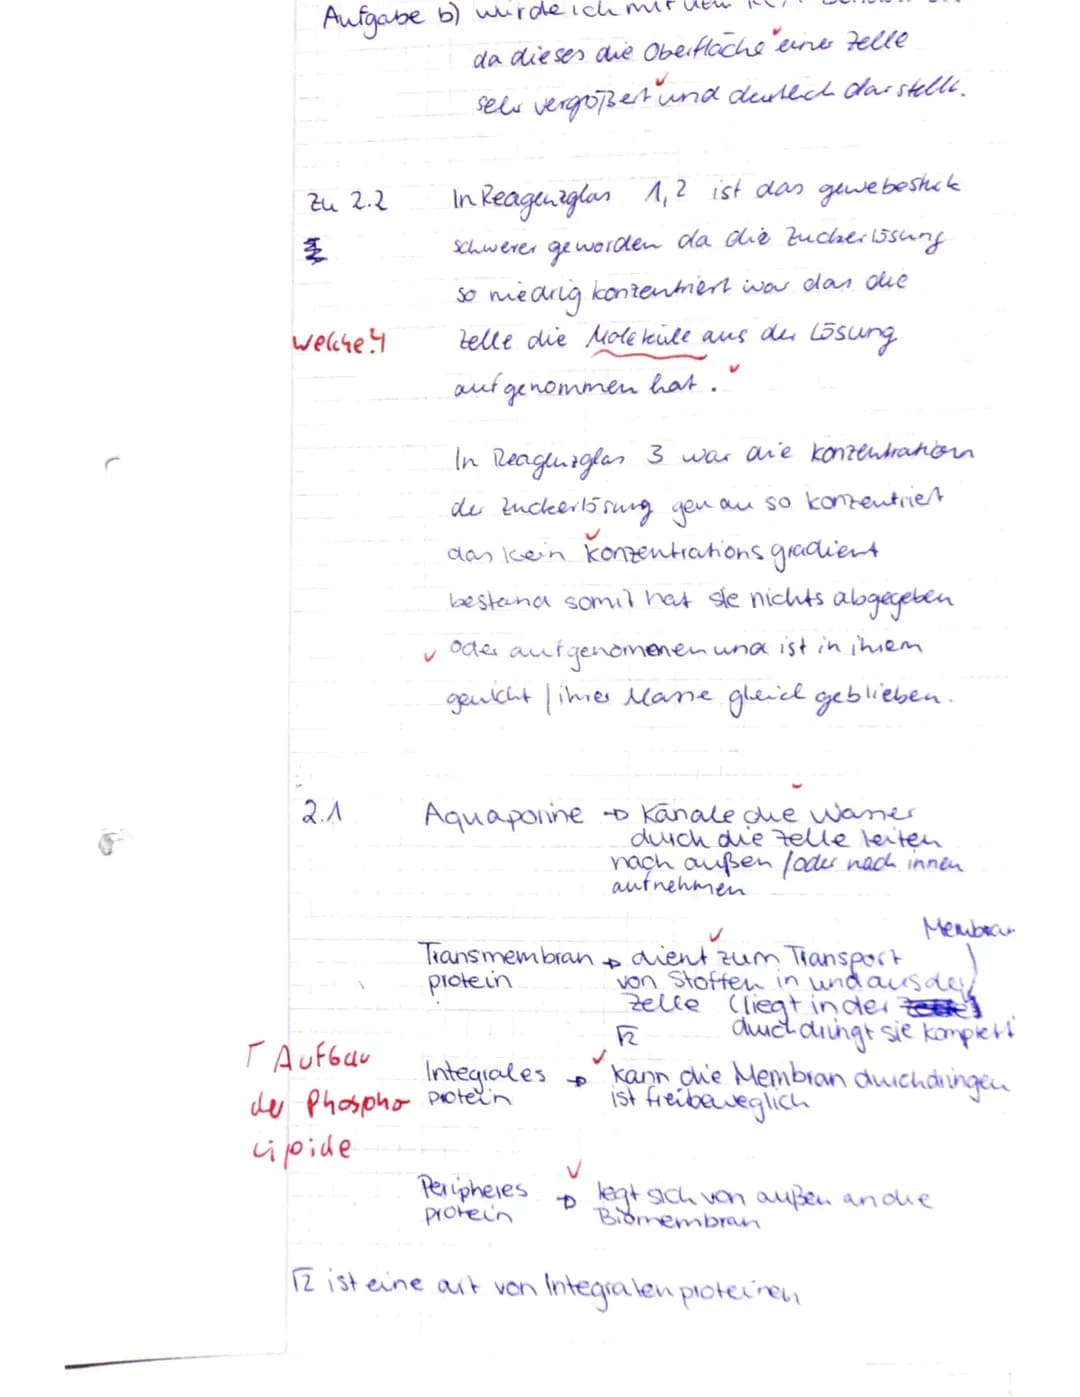 Aufgabe b) würde ich mit dem
da dieses die Oberfläche einer Zelle
sehr vergößert und deutlich darstellt.
Zu 2.2 In Reagenzglas 1,2 ist das gewebestück
schwerer geworden da die Zuckerlösung
so niedrig konzentriert war das die
welche? Zelle die Moleküle aus der Lösung
aufgenommen hat.
In Reagenzglas 3 war die Konzentration
der Zuckerlösung genau so konzentriert
das kein Konzentrationsgradient
bestand somit hat sie nichts abgegeben
oder aufgenomenen und ist in ihrem
gewicht / ihrer Masse gleich geblieben.
2.1 Aquaporine → Kanäle die Wasser
durch die Zelle leiten
nach außen / oder nach innen
aufnehmen
Membran
Transmembran → dient zum Transport
protein von Stoffen in und aus der
Zelle (liegt in der
Γ2 durchdringt sie komplett
Γ Aufbau
der Phospho
lipide
Integrales → kann die Membran durchdringen
protein ist freibeweglich
Peripheres → legt sich von außen an die
protein Biomembran
Γ2 ist eine art von Integralen proteinen